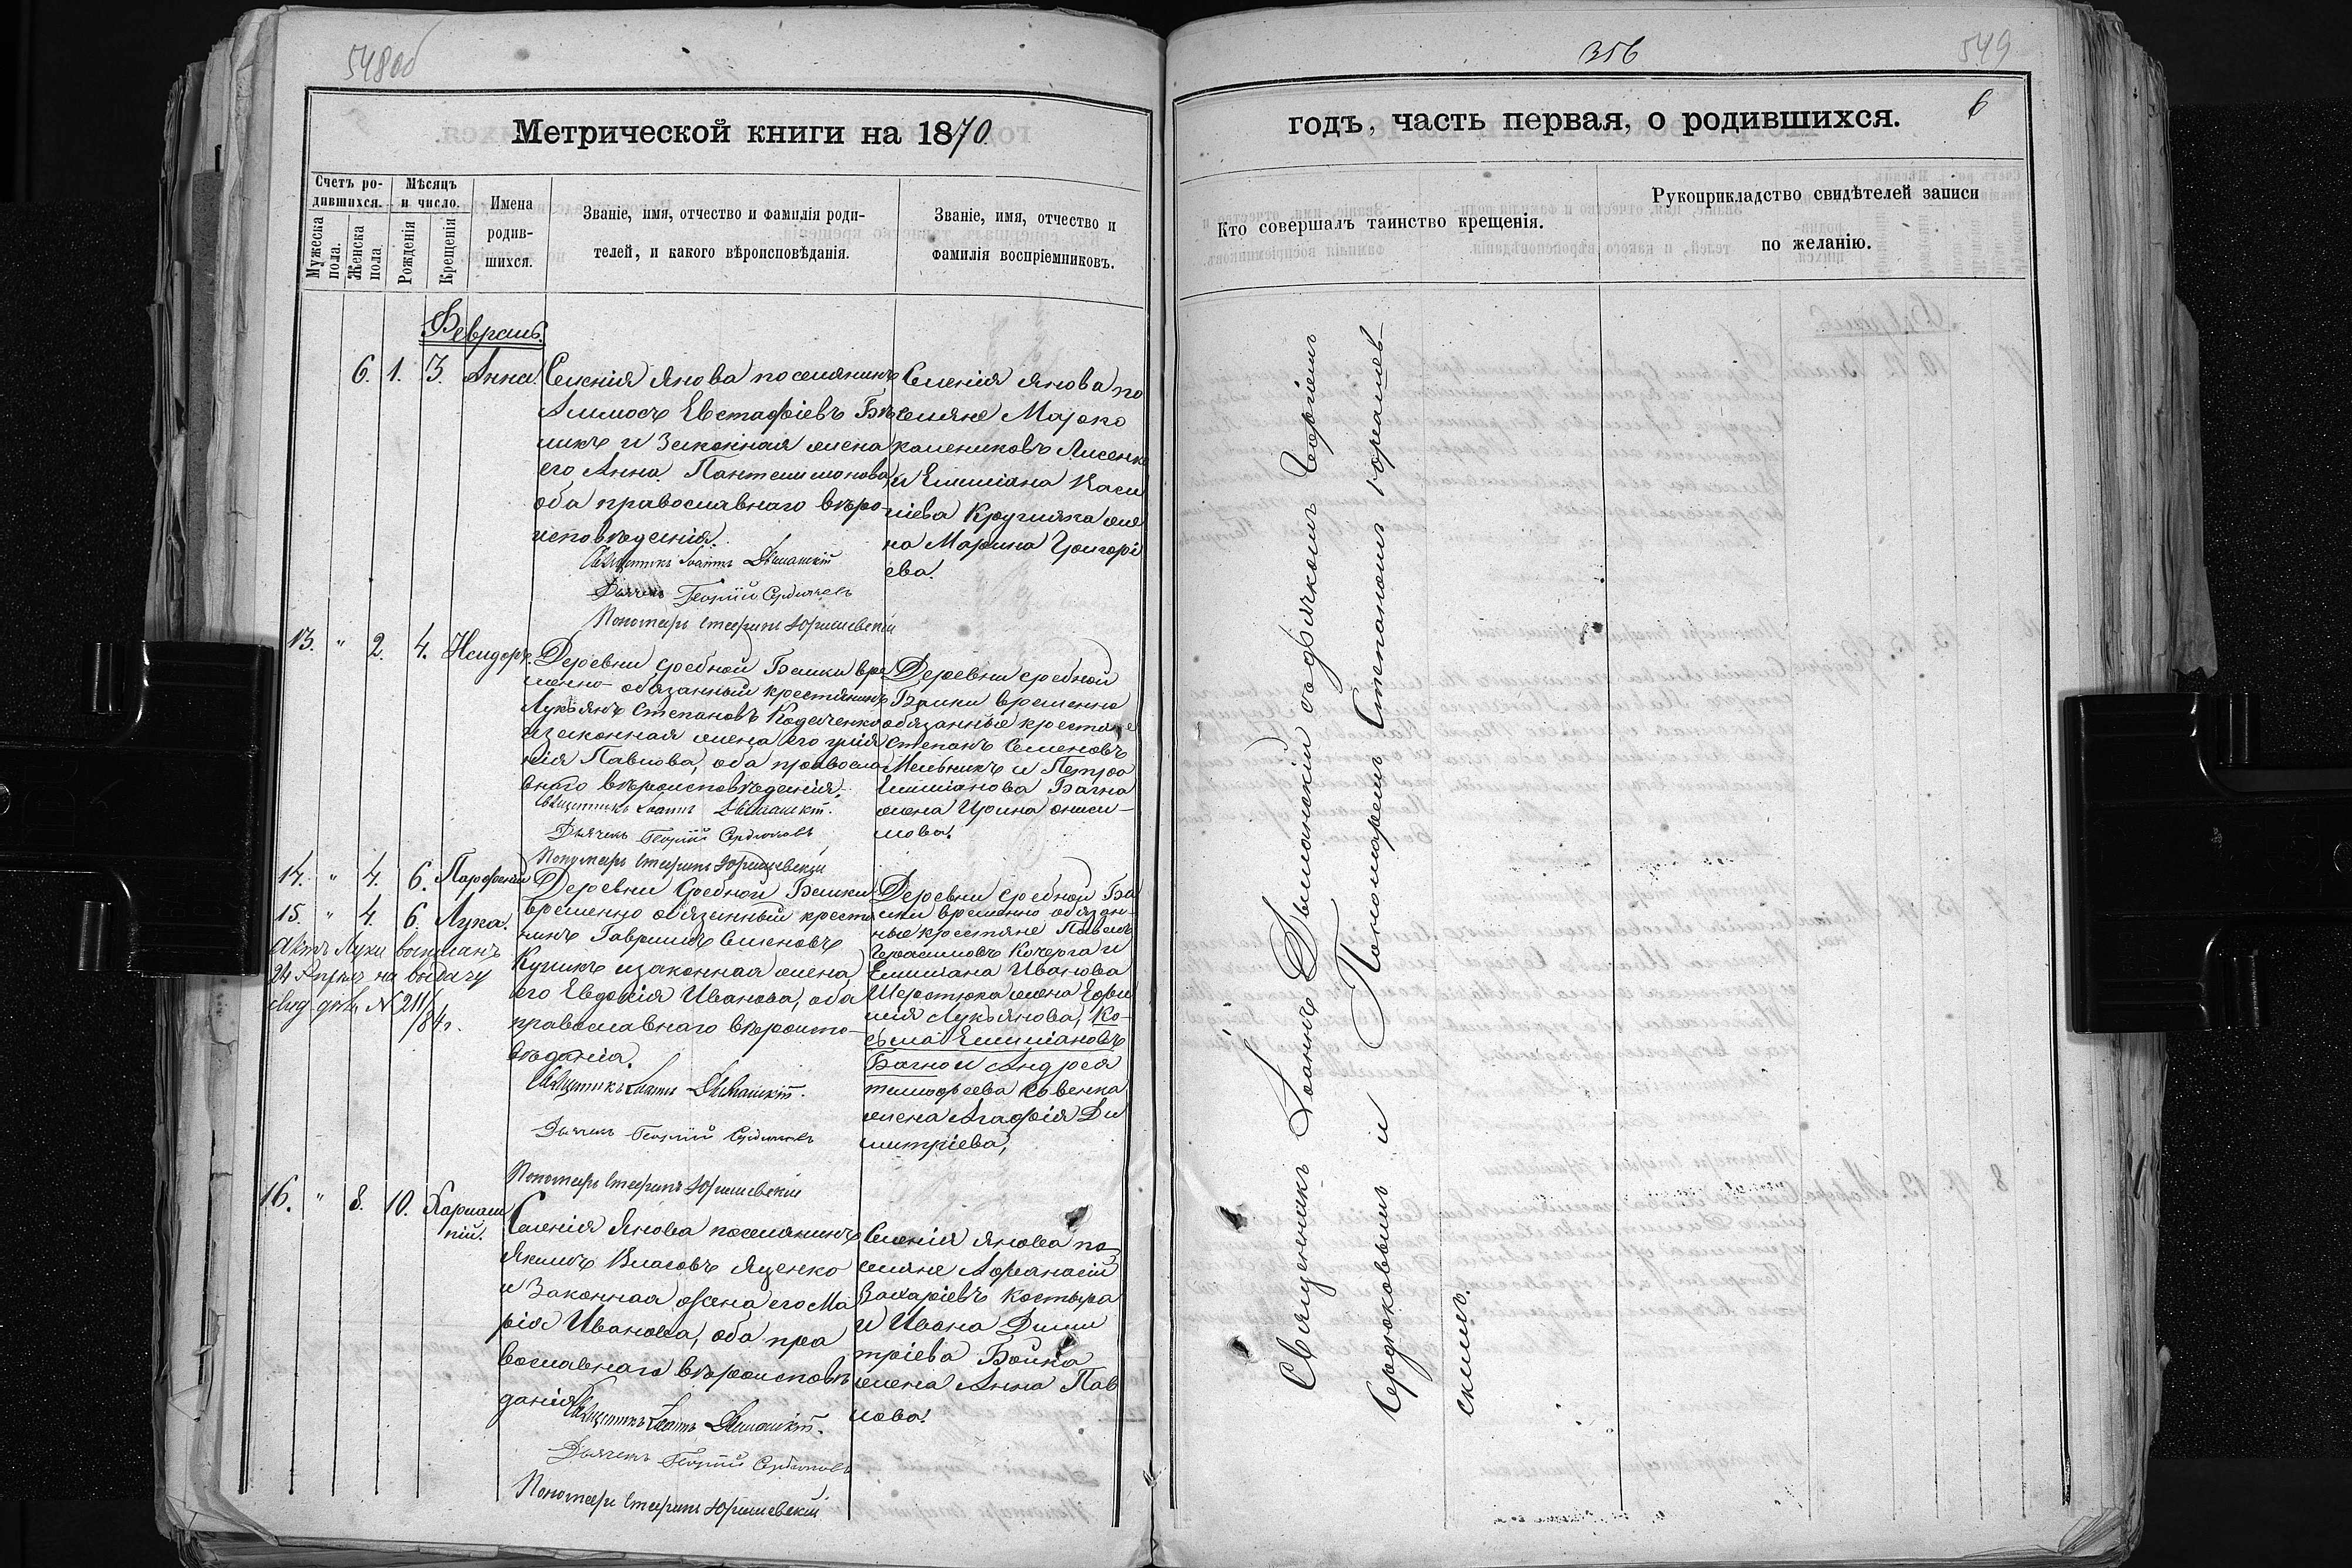 548об
Метрической книги на 1870
Счетъ ро-
дившихся.
Мѣсяцъ
и число.
Мужеска
пола.
Женска
пола.
Рожденія
Крещенія
Имена
родив-
шихся.
Званіе, имя, отчество и фамилія роди-
телей, и какого вѣроисповѣданія.
Званіе, имя, отчество и
фамилія воспріемниковъ.
Февраль.
6. 1. 3. Анна.
Селенія Янова поселянинъ
Евстафіевъ
и Законная жена
его Анна Пантелимонова,
оба православнаго вѣро-
исповѣденія.
Священникъ Іоаннъ Дыманскій
Дьячекъ Георгій Сердюковъ
Пономарь Стефанъ Юрашевскій
Селенія Янова по
селяне Марко
Лисенко
и Емиліана Каси
ніева Кругляка же
на Марина Григорі
ева.
13. " 2. 4. Исидоръ.
Деревни средной Балки вре
менно-обязанный крестянинъ
Лукьянъ Степановъ
изаконная жена его Іулія
нія Павлова, оба правосла
внаго вѣроисповѣденія.
Священникъ Іоаннъ Дыманскій.
Дьячекъ Георгій Сердюковъ
Пономарь Стефанъ Юрашевскій
Деревни средной
Балки временно
обязанные крестяне
Степанъ Семеновъ
Мельникъ и Петра
Емиліанова Багна
жена Ирина Аниси-
мова.
14. " 4. 6. Парфеній
15. " 4. 6. Лука.
Актъ Луки
24 Апрѣля на выдачу
№ 211/84.
Деревни Средной Балки
временно обязанный крестя
нинъ Гавриилъ Семеновъ
Куликъ изаконная жена
его Евдокія Иванова, оба
православнаго вѣроиспо-
вѣданія.
Священникъ Іоаннъ Дыманскій.
Дьячекъ Георгій Сердюковъ
Пономарь Стефанъ Юрашевскій
Деревни средной Ба
лки временно обязан-
ные крестяне Павелъ
Герасимовъ Кочерга и
Емиліана Иванова
Шерстюка жена Ефи
мія Лукьянова, Ко-
сьма Емиліановъ
Багно и Андрея
тимофеева Ковенка
жена Агафія Ди
митріева,
16. " 8. 10. Харлам
пій.
Селенія Янова поселянинъ
Якимъ Власовъ Яценко
и Законная жена его Ма
рія Иванова, оба пра
вославнаго вѣроисповѣ
данія
Священникъ Іоаннъ Дыманскій.
Дьячекъ Георгій Сердюковъ
Пономарь Стефанъ Юрашевскій
Селенія Янова по
селяне Афанасій
Захаріевъ Костыра
и Ивана Дими
тріева Бойка
жена Анна Пав
лова.
356
549
6
годъ, часть первая, о родившихся.
Кто совершалъ таинство крещенія.
Рукоприкладство свидѣтелей записи
по желанію.
Священникъ Іоаннъ Дыманскій съ дьячкомъ Георгіемъ
Сердюковымъ и Пономаремъ Степаномъ Юрашев-
скимъ.